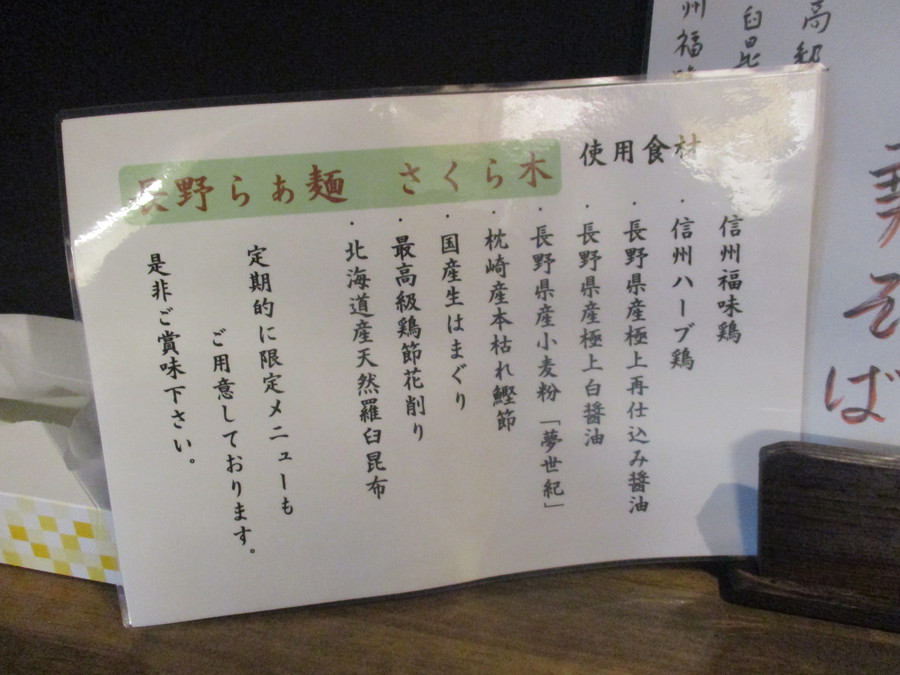 長野らぁ麺 さくら木 使用食材
信州福味鶏
・信州ハーブ鶏
・長野県産極上再仕込み醤油
・長野県産極上白醤油
・長野県産小麦粉「夢世紀」
・枕崎産本枯れ鰹節
・国産生はまぐり
・最高級鶏節花削り
・北海道産天然羅臼昆布
定期的に限定メニューも
ご用意しております。
是非ご賞味下さい。
高級
臼昆
州福味
そば